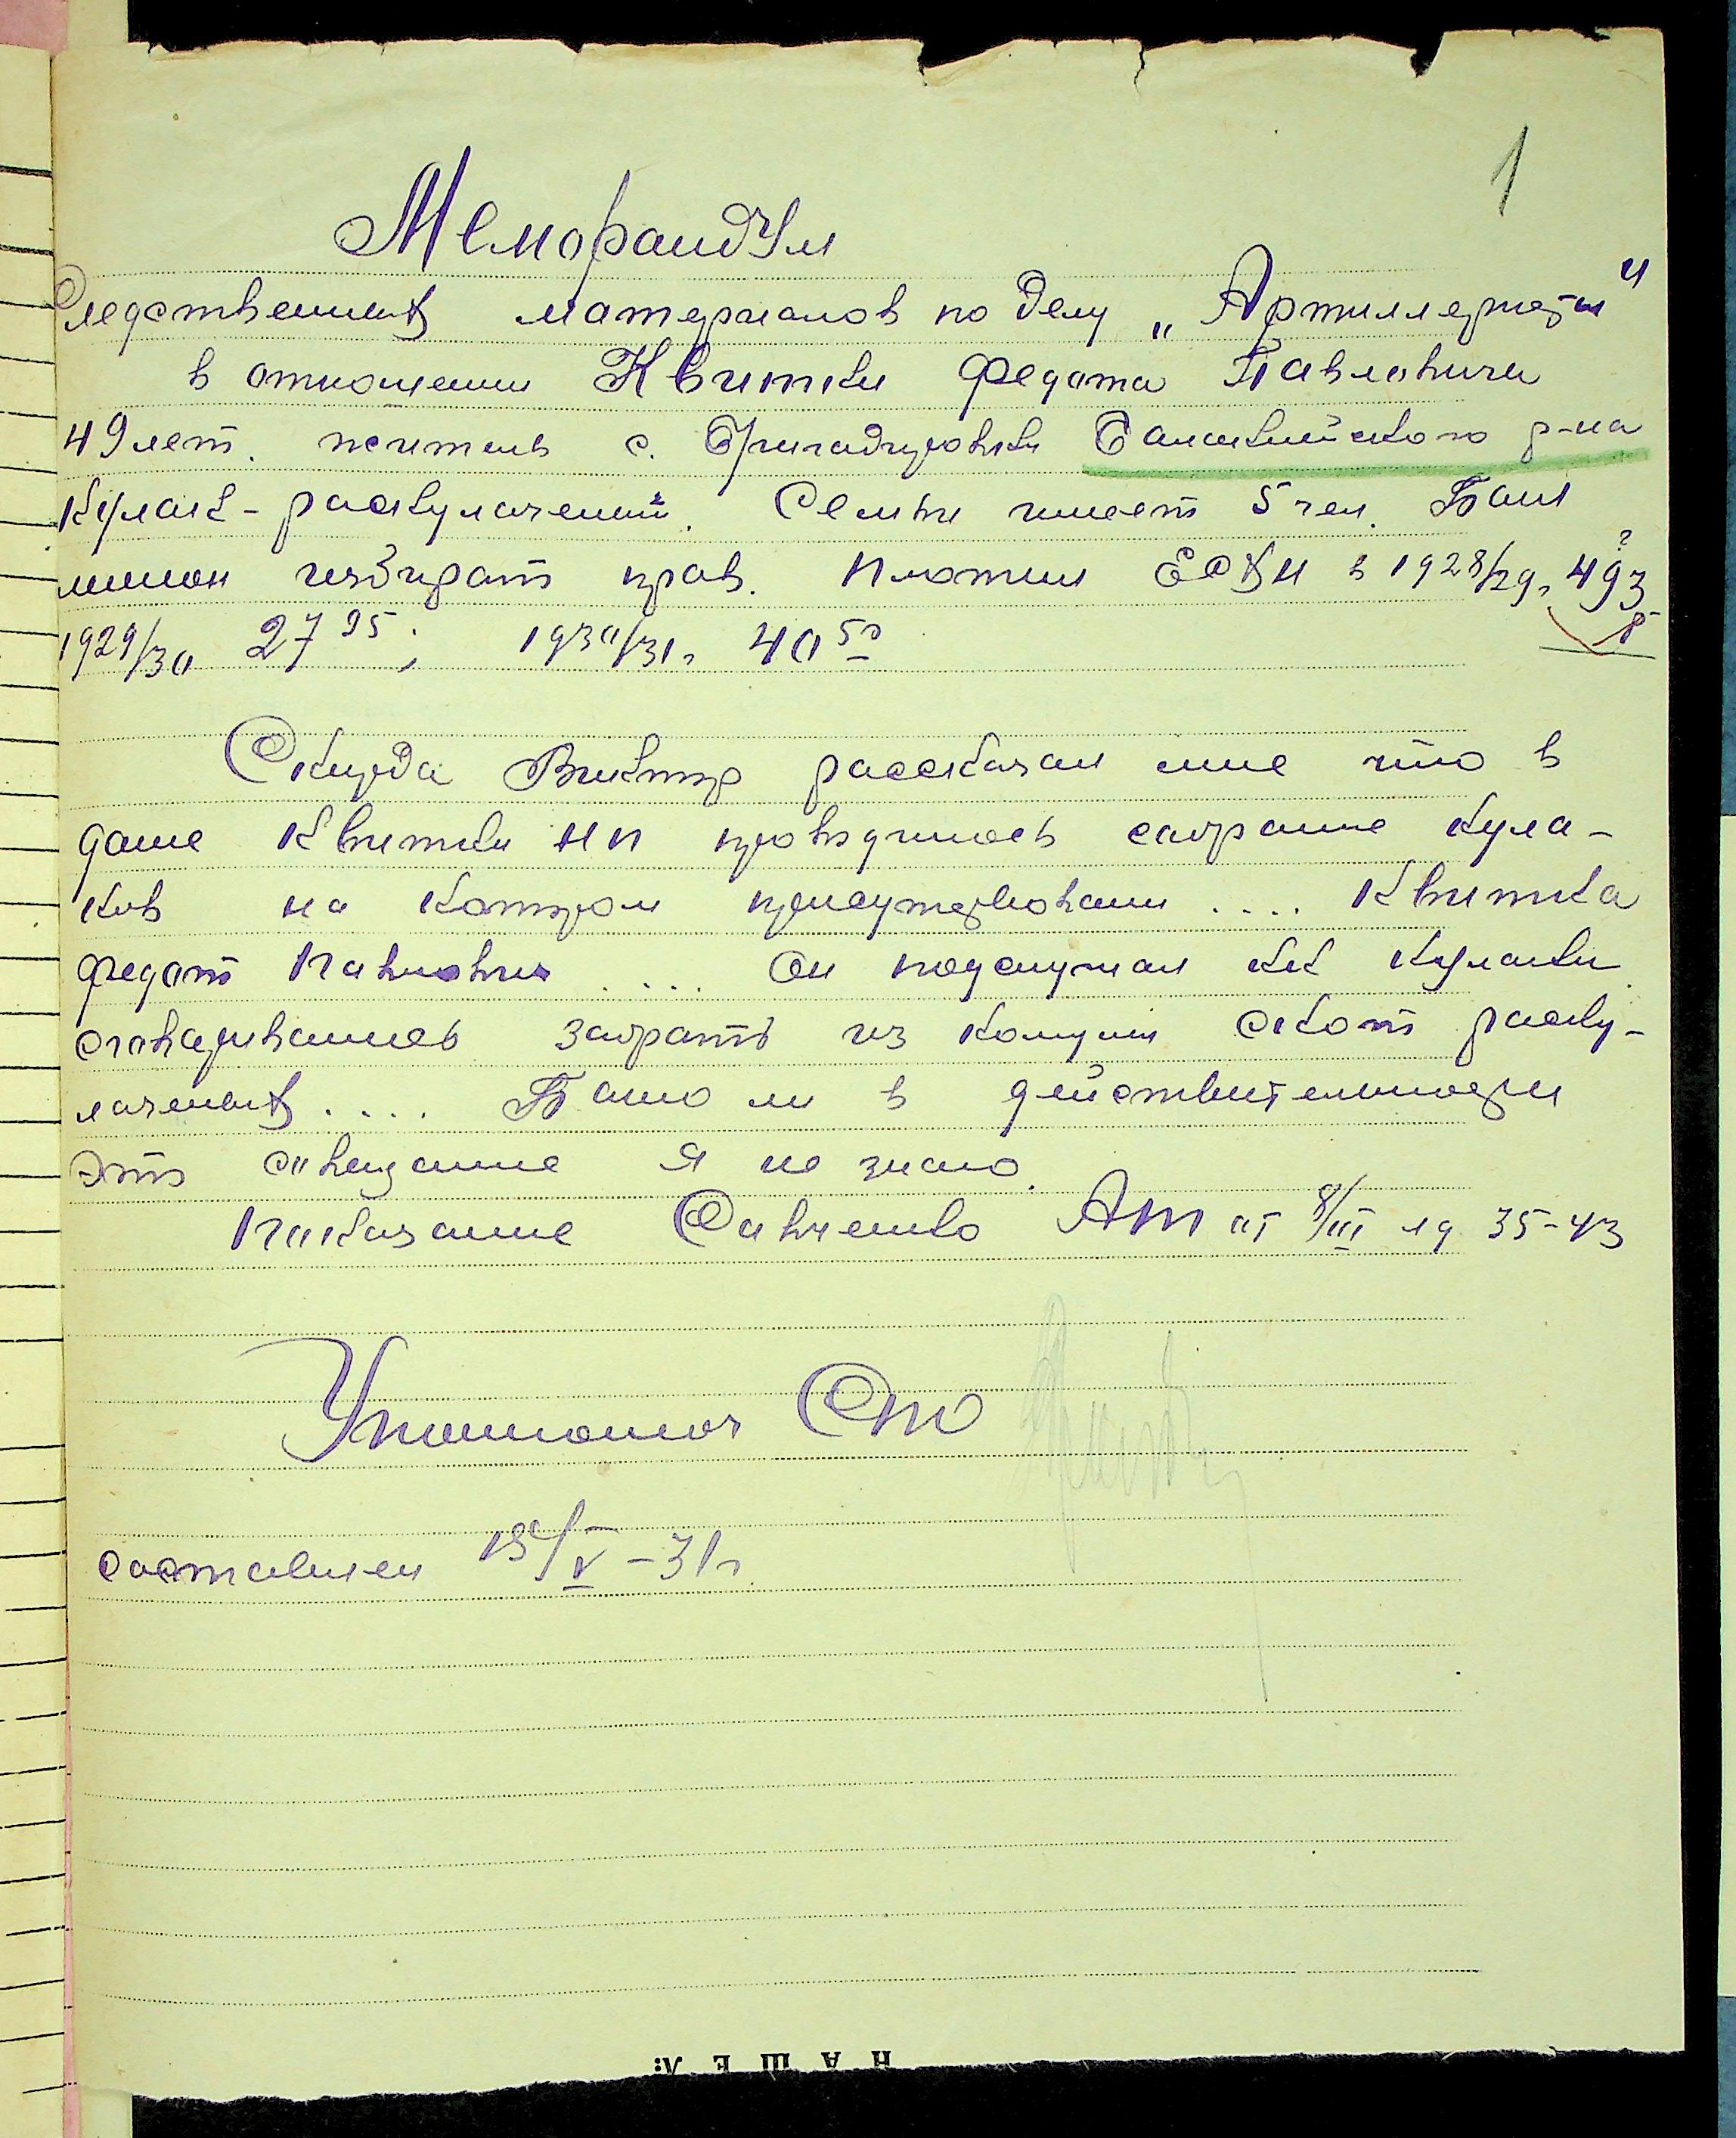 1
Меморандум
Следственных материалов по делу „Артиллеристы"
в отношении Квитки Федота Павловича
49 лет. житель с. Балаклийского р-на
Кулак-раскулачений. Семьи имеет 5 чел. Был
лишон избират прав. Платил ЕСХН в 1928/29г 493
1929/30 27 95; 1930/31г 40 50
Скирда Виктор рассказал мне что в
доме Квитки ФП проводилось собрание кула-
ков на котором присутствовали .... Квитка
Федот Павлович ..... Он подслушал как кулаки
сговаривались забрать из комуни скот раску-
лаченых .... Было ли в действительности
это совещание я не знаю.
Показание Савченко АТ от 8/III лд 35-43
Уполномоч СПО
составлен 15/V-31г.
НАШЕЛ: